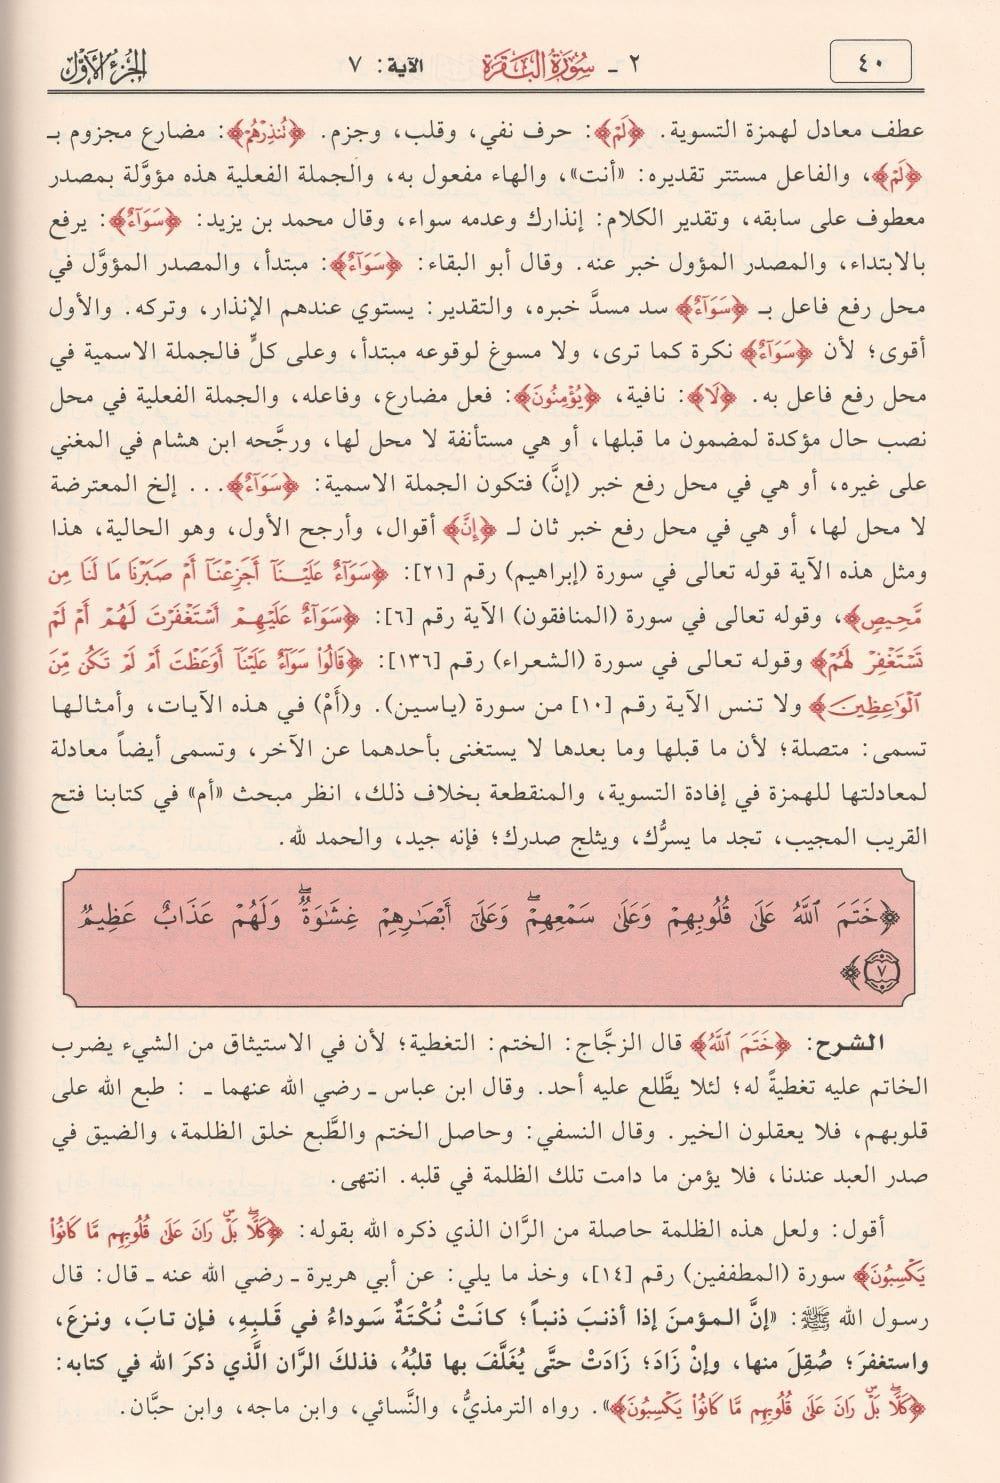 ٤٠ ٢ ـ سُورَةُ البَقَرَة الآية: ٧ الجزءُ الأوّل
عطف معادل لهمزة التسوية. ﴿لَمْ﴾: حرف نفي، وقلب، وجزم. ﴿تُنذِرْهُمْ﴾: مضارع مجزوم بـ
﴿لَمْ﴾، والفاعل مستتر تقديره: «أنت»، والهاء مفعول به، والجملة الفعلية هذه مؤوَّلة بمصدر
معطوف على سابقه، وتقدير الكلام: إنذارك وعدمه سواء، وقال محمد بن يزيد: ﴿سَوَآءٌ﴾: يرفع
بالابتداء، والمصدر المؤول خبر عنه. وقال أبو البقاء: ﴿سَوَآءٌ﴾: مبتدأ، والمصدر المؤوَّل في
محل رفع فاعل بـ ﴿سَوَآءٌ﴾ سد مسدَّ خبره، والتقدير: يستوي عندهم الإنذار، وتركه. والأول
أقوى؛ لأن ﴿سَوَآءٌ﴾ نكرة كما ترى، ولا مسوغ لوقوعه مبتدأ، وعلى كلٍّ فالجملة الاسمية في
محل رفع فاعل به. ﴿لَا﴾: نافية، ﴿يُؤْمِنُونَ﴾: فعل مضارع، وفاعله، والجملة الفعلية في محل
نصب حال مؤكدة لمضمون ما قبلها، أو هي مستأنفة لا محل لها، ورجَّحه ابن هشام في المغني
على غيره، أو هي في محل رفع خبر (إنَّ) فتكون الجملة الاسمية: ﴿سَوَآءٌ﴾... إلخ المعترضة
لا محل لها، أو هي في محل رفع خبر ثان لـ ﴿إِنَّ﴾ أقوال، وأرجح الأول، وهو الحالية، هذا
ومثل هذه الآية قوله تعالى في سورة (إبراهيم) رقم [٢١]: ﴿سَوَآءٌ عَلَيْـنَآ أَجَزِعْنَآ أَمْ صَبَرْنَا مَا لَنَا مِن
مَّحِيصٍ﴾، وقوله تعالى في سورة (المنافقون) الآية رقم [٦]: ﴿سَوَآءٌ عَلَيْهِمْ أَسْتَغْفَرْتَ لَهُمْ أَمْ لَمْ
تَسْتَغْفِرْ لَهُمْ﴾ وقوله تعالى في سورة (الشعراء) رقم [١٣٦]: ﴿قَالُوا۟ سَوَآءٌ عَلَيْنَآ أَوَعَظْتَ أَمْ لَمْ تَكُن مِّنَ
ٱلْوَٰعِظِينَ﴾ ولا تنس الآية رقم [١٠] من سورة (ياسين). و(أَمْ) في هذه الآيات، وأمثالها
تسمى: متصلة؛ لأن ما قبلها وما بعدها لا يستغنى بأحدهما عن الآخر، وتسمى أيضاً معادلة
لمعادلتها للهمزة في إفادة التسوية، والمنقطعة بخلاف ذلك، انظر مبحث «أم» في كتابنا فتح
القريب المجيب، تجد ما يسرُّك، ويثلج صدرك؛ فإنه جيد، والحمد لله.
﴿خَتَمَ ٱللَّهُ عَلَىٰ قُلُوبِهِمْ وَعَلَىٰ سَمْعِهِمْ ۖ وَعَلَىٰٓ أَبْصَٰرِهِمْ غِشَٰوَةٌ ۖ وَلَهُمْ عَذَابٌ عَظِيمٌ
٧﴾
الشرح: ﴿خَتَمَ ٱللَّهُ﴾ قال الزجَّاج: الختم: التغطية؛ لأن في الاستيثاق من الشيء يضرب
الخاتم عليه تغطيةً له؛ لئلا يطَّلع عليه أحد. وقال ابن عباس ـ رضي الله عنهما ـ : طبع الله على
قلوبهم، فلا يعقلون الخير. وقال النسفي: وحاصل الختم والطَّبع خلق الظلمة، والضيق في
صدر العبد عندنا، فلا يؤمن ما دامت تلك الظلمة في قلبه. انتهى.
أقول: ولعل هذه الظلمة حاصلة من الرَّان الذي ذكره الله بقوله: ﴿كَلَّا ۖ بَلْ ۜ رَانَ عَلَىٰ قُلُوبِهِم مَّا كَانُوا۟
يَكْسِبُونَ﴾ سورة (المطففين) رقم [١٤]، وخذ ما يلي: عن أبي هريرة ـ رضي الله عنه ـ قال: قال
رسول الله ﷺ: «إنَّ المؤمنَ إذا أذنبَ ذنباً؛ كانَتْ نُكْتَةٌ سَوداءُ في قَلبِهِ، فإن تابَ، ونزعَ،
واستغفرَ؛ صُقِلَ منها، وإنْ زَادَ؛ زَادَتْ حتَّى يُغَلَّفَ بها قلبُهُ، فذلكَ الرَّان الَّذي ذكرَ الله في كتابه:
﴿كَلَّا ۖ بَلْ ۜ رَانَ عَلَىٰ قُلُوبِهِم مَّا كَانُوا۟ يَكْسِبُونَ﴾». رواه الترمذيُّ، والنَّسائي، وابن ماجه، وابن حبَّان.